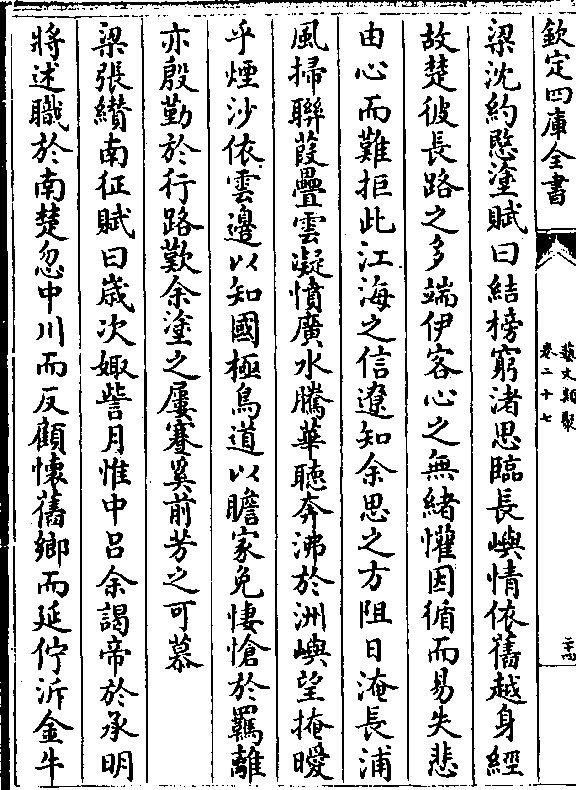 欽定四庫全書
藝文類聚
卷二十七
梁沈約愍塗賦曰結榜窮渚思臨長嶼情依舊越身經
故楚彼長路之多端伊客心之無緒懽因循而易失悲
由心而難拒此江海之信遼知余思之方阻日淹長浦
風掃聯葭疊雲凝憤廣水騰華聽奔沸於洲嶼望掩曖
乎煙沙依雲邊以知國極鳥道以瞻家免悽愴於羈離
亦殷勤於行路歎余塗之屢蹇奚前芳之可慕
梁張纘南征賦曰歲次娵訾月惟中呂余謁帝於承明
將述職於南楚忽中川而反顧懷舊鄉而延佇泝金牛